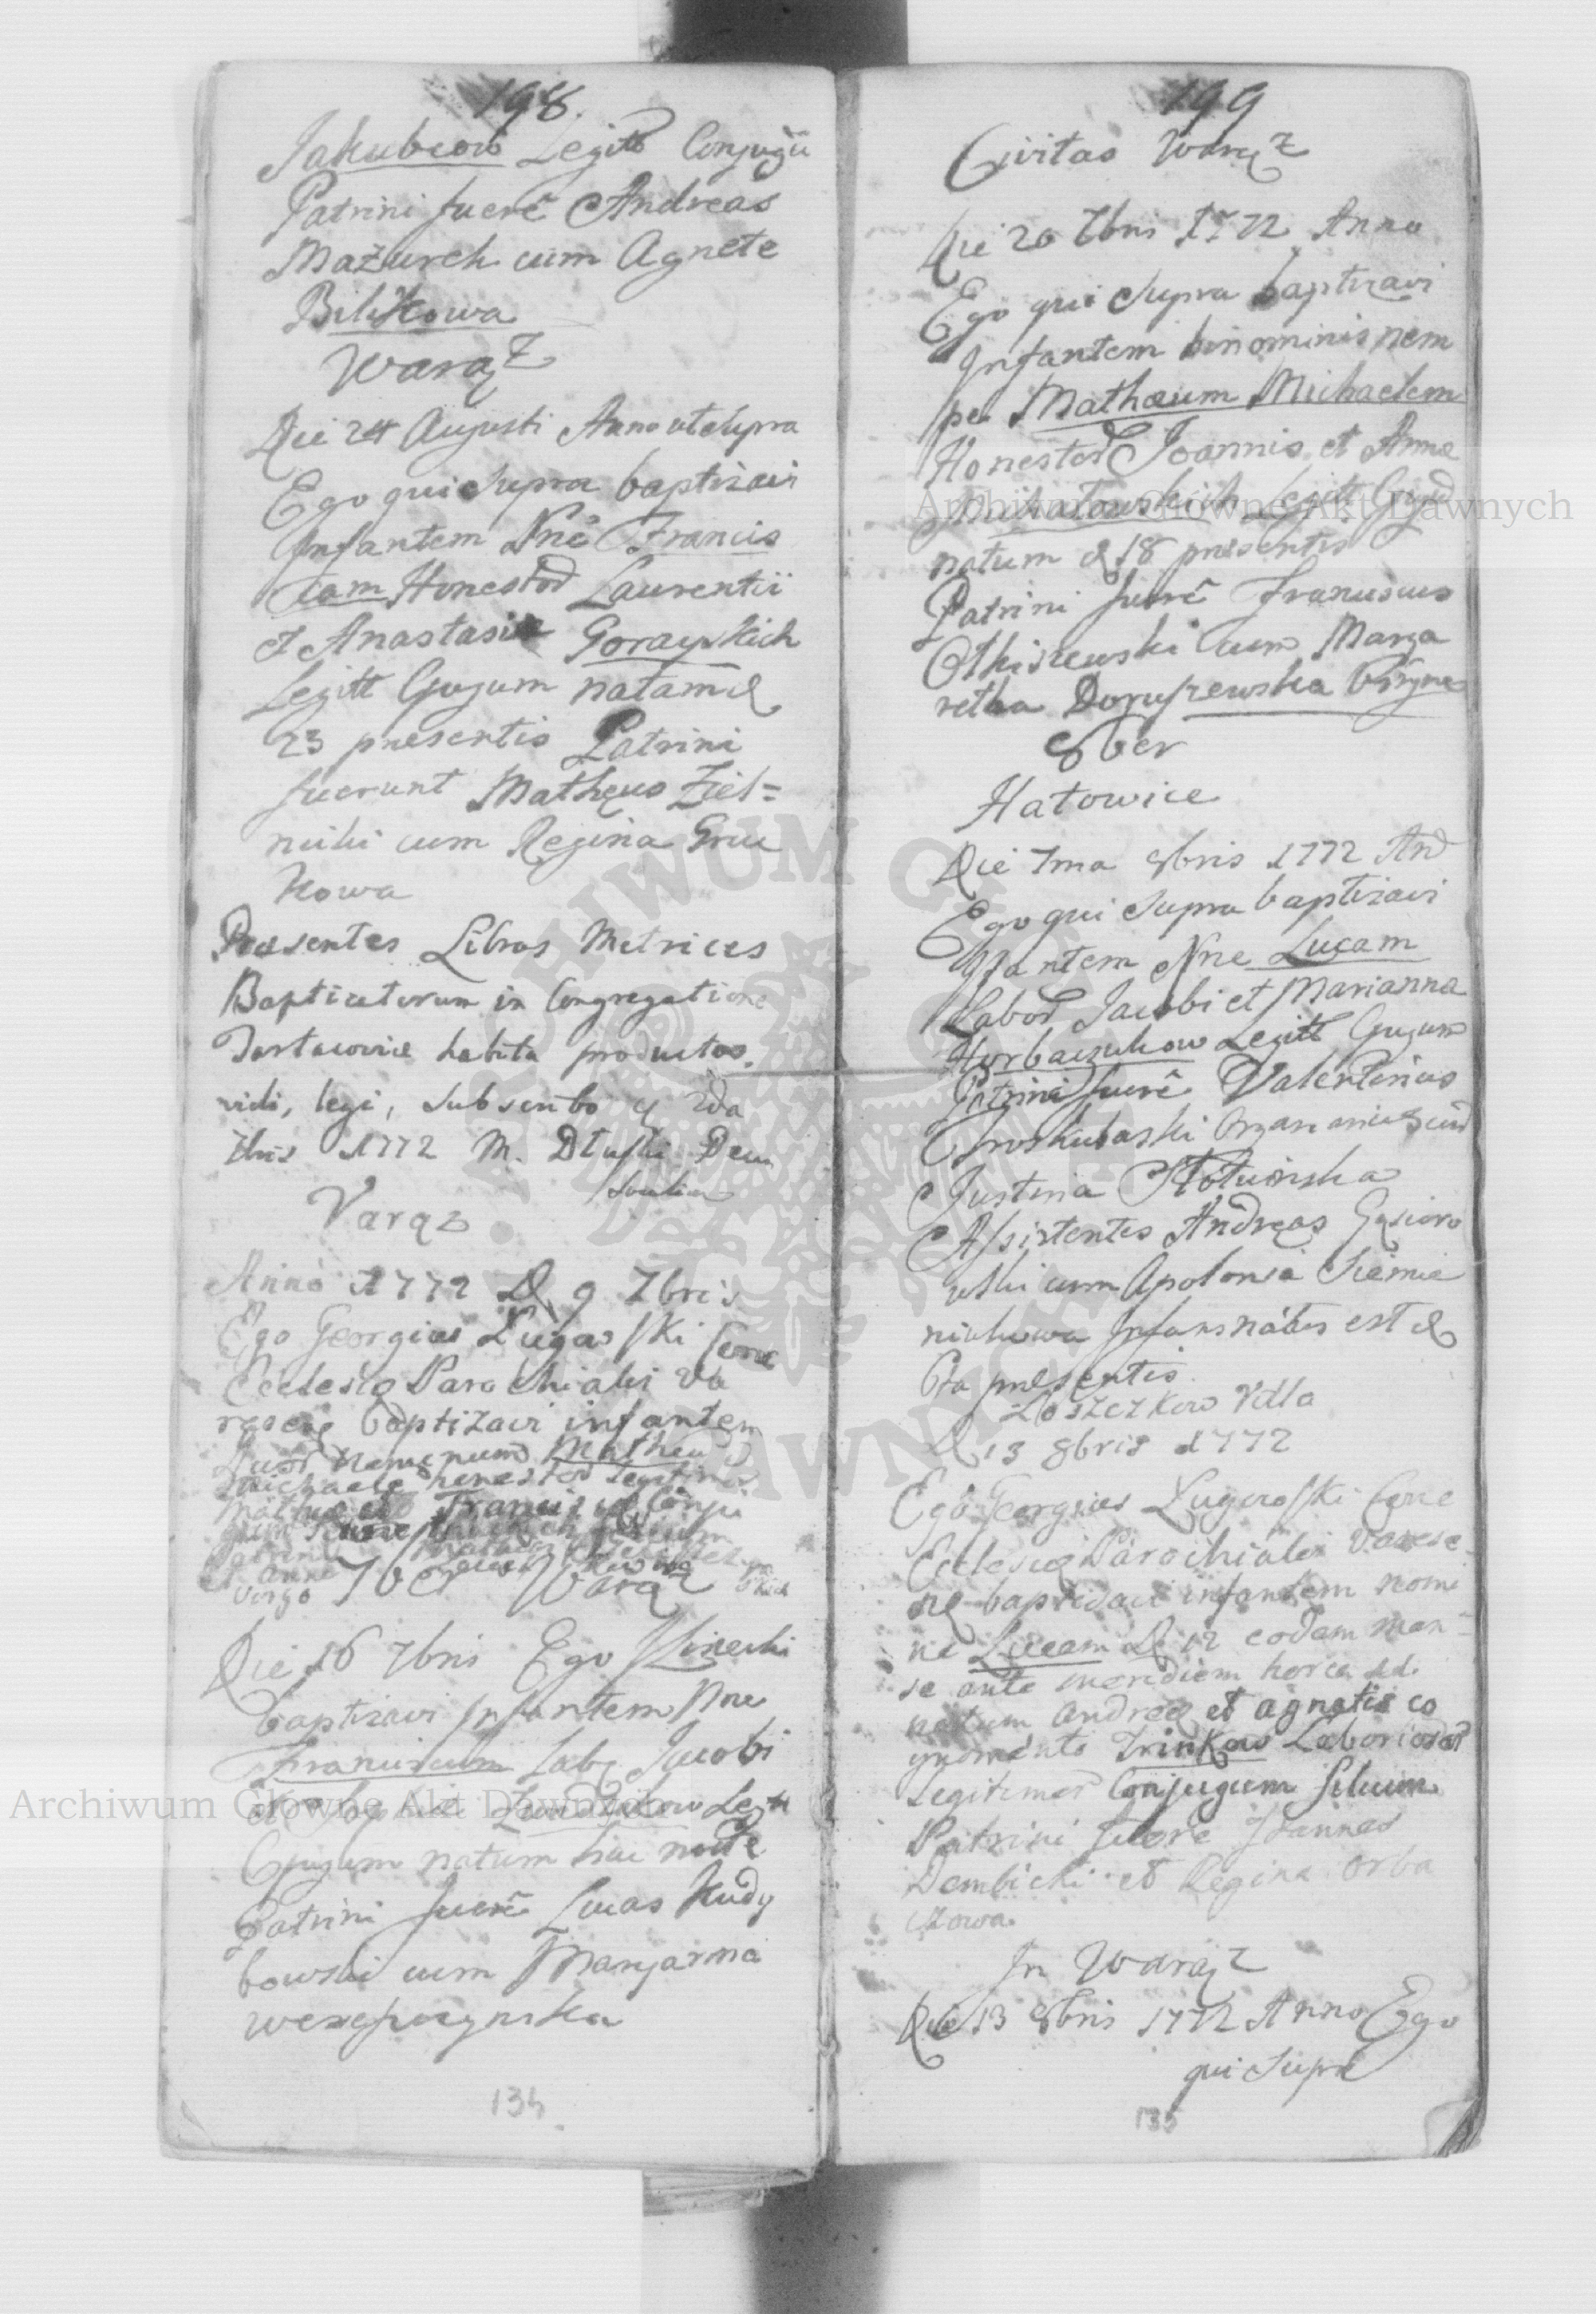 198.
Jakubcow Legitt Conjugu
Patrini fuere Andreas
Mazurek cum Agnete
Bilikowa
Warąż
Die 24 Augusti Anno ut Supra
Ego qui Supra baptisavi
Infantem Nne Francis
cam Honestor Laurentii
et Anastasiæ Gorayskich
Legitt Gugum natam d
23 presentis Patrini
fuerunt Mathęus Ziel=
nicki cum Regina Gru
kowa
Præsentes Libros Metrices
Baptisatorum in Congregatione
Tartacoviæ habita productos
vidi, legi, subscribo d 2da
7bris 1772 M. Dłuski Decan
Varąz
Anno 1772 D 9 7bris
Ego Georgius Ługowski Come
Ecclesię Parochialis Va
rescę baptizavi infantem
Duor Nominum Matheu
Michaele honestor Legitimor
7ber Warąż
Virgo
Die 16 7bris Ego
baptisavi Infantem Nne
Franciscum Lab Jacobi
et Legtt
Gugum natum hac nocte
Patrini fuere Lucas Kudy
bowski cum Maryanna
199
Civitas Warąż
Die 20 7bris 1772 Anno
Ego qui Supra baptizavi
Infantem binominis nem
pe Mathæum Michaelem
Honestor Joannis et Annæ
Legitt Gugu
natum d 18 presentis
Patrini fuere Franciscus
Olkiszewski cum Marga
retha Doruszewska Virgine
8ber
Hatowice
Die 7ma 8bris 1772 And
Ego qui Supra baptisavi
Ifantem Nne Luçam
Labor Jacobi et Marianna
Horbaczukow Legitt Gugum
Patrini fuere Valentinus
Organarius cum
Justina
Assistentes Andreas Gąsioro
wski cum Apolonia Siemie
niukowa Infans natus est d
6ta presentis
Łoszczkow Villa
D 13 8bris 1772
Ego Georgius Ługowski Come
Ecclesię Parochialis Varese
nę baptisavi infantem nomi
ne Lucam D 12 eodem men=
se ante meridiem
natum Andreę et agnetis co
gnomento Trinkow Laboriosor
Legitimor Conjugum filium
Patrini fuere Joannes
Dembicki et Regina Orba
czowa
In Warąż
Die 13 8bris 1772 Anno Ego
qui Supra
134
135
Archiwum Główne Akt Dawnych
Archiwum Główne Akt Dawnych